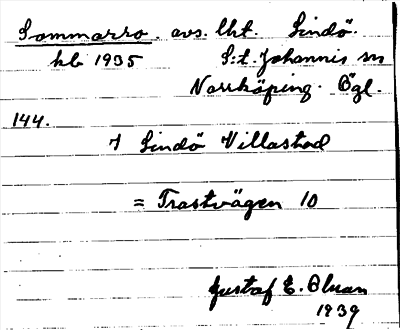 Sommarro. avs. lht. Lindö.
kb 1935 S:t. Johannis sn
Norrköping. Ögl.
144.
I Lindö Villastad
= Trastvägen 10
Gustaf E. Olsson
1939